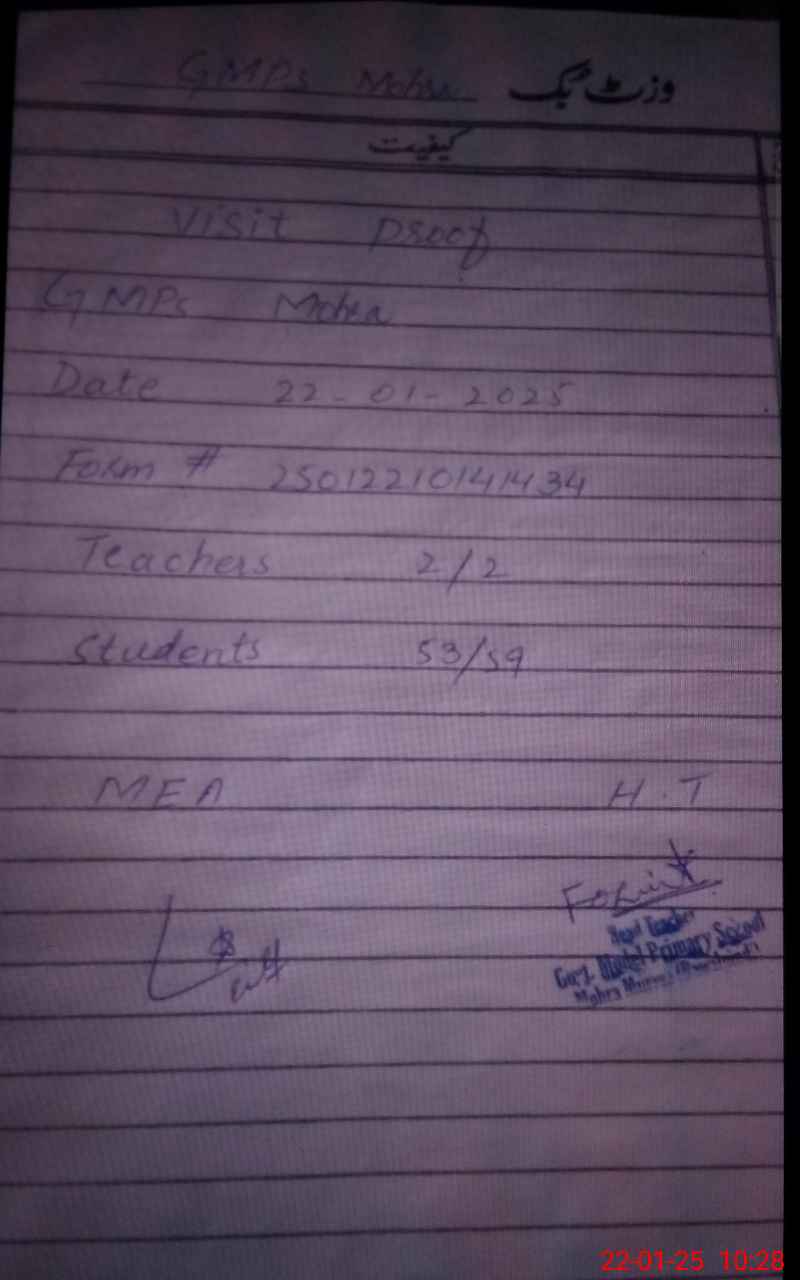 GMPs Mohra وزٹ بک
کیفیت
Visit Proof
GMPs Mohra
Date 22-01-2025
Form # 25012210141434
Teachers 2/2
Students 53/59
MEA H.T
Head Teacher
Govt. Model Primary School
Mohra
22-01-25 10:28